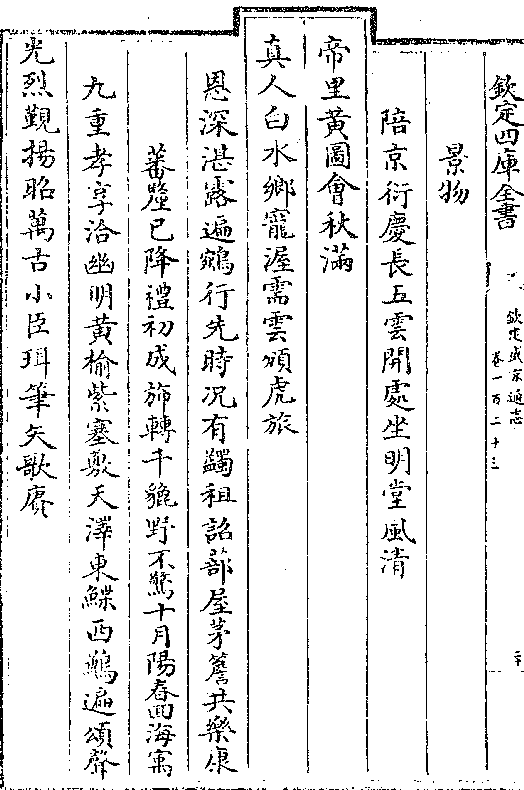 欽定四庫全書
欽定盛京通志
卷一百二十三
景物
陪京衍慶長五雲開處坐明堂風清
帝里黃圖會秋滿
真人白水鄉寵渥需雲頌虎旅
恩深湛露遍鵷行先時况有蠲租詔蔀屋茅簷共樂康
蕃釐已降禮初成斾轉千貔野不驚十月陽春回海㝢
九重孝享洽幽明黃榆紫塞敷天澤東鰈西鶼遍頌聲
光烈覲揚昭萬古小臣珥筆矢歌賡